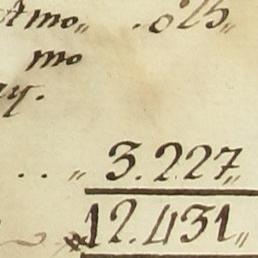 Amo,, . 015,,
mo
ay.
. . ,, 3.227,,
12.431,,